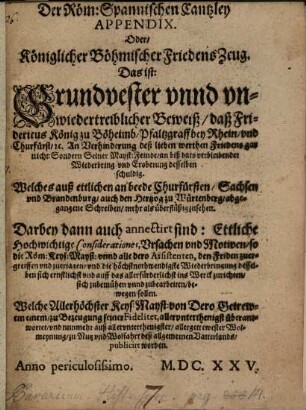 Der Röm: Spannischen Cantzley
APPENDIX.
Oder/
Königlicher Böhmischer Friedens Zeug.
Das ist:
Grundvester vnnd vn-
wiedertreiblicher Beweiß / daß Fri-
dericus König zu Böheimb / Pfaltzgraff bey Rhein / vnd
Churfürst / ꝛc. An Verhinderung deß lieben werthen Friedens gar
nicht Sondern Seiner Mayst: Feinde / an biß dato verbleibender
Wiederbring vnd Eroberung desselben
schuldig.
Welches auß ettlichen an beede Churfürsten / Sachsen
vnd Brandenburg / auch den Hertzog zu Würtenberg / abge-
gangene Schreiben / mehr als überflüssig zusehen.
Darbey dann auch annectirt sind: Ettliche
Hochwichtige Considerationes, Vrsachen vnd Motiven / so
die Röm: Keys: Mayst: vnnd alle dero Assistenten, den Frieden zuer-
greiffen vnd zuerhalten / vnd die höchstnothwendigste Wiederbringung dessel-
ben sich ernstlichst vnd auff das allerfürderlichst ins Werck zurichten /
sich zubemühen vnnd zubearbeiten / be-
wegen sollen.
Welche Allerhöchster Keys: Mayst: von Dero Getrew-
em einem / zu Bezeugung seiner Fidelitet, allervnterthenigst überant-
wortet / vnd nunmehr auß allervnterthenigster / allergetrewester Wol-
meynung / zu Nutz vnd Wolfahrt deß allgemeinen Vatterlands /
publicirt worden.
Anno periculosissimo. M.DC.XXV.